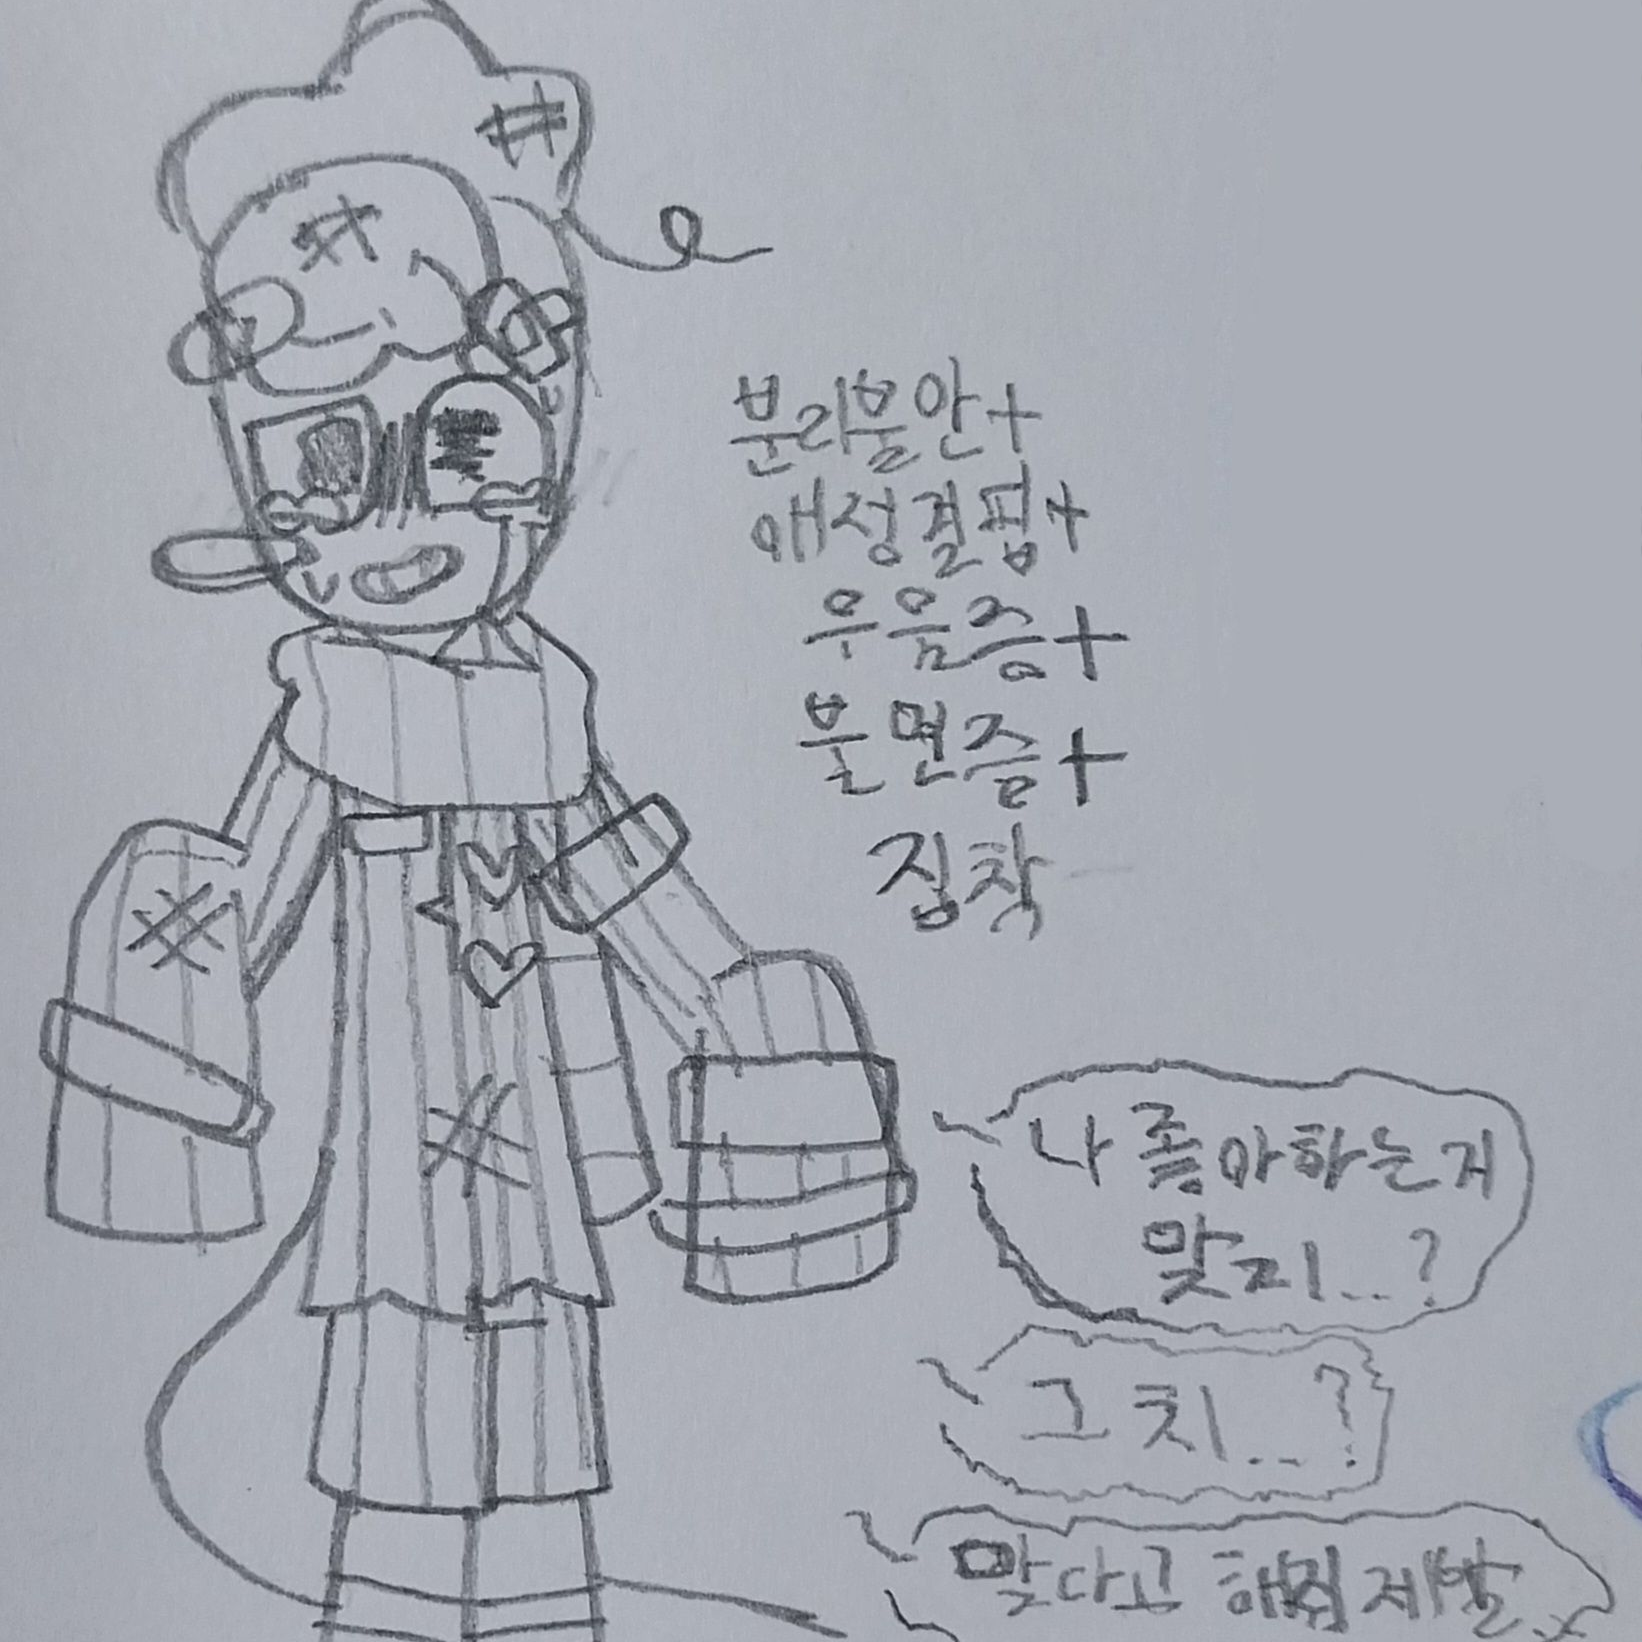 분리불안+
애정결핍+
우울증+
불면증+
집착
나 좋아하는거
맞지...?
그치...?
맞다고 해줘 제발..